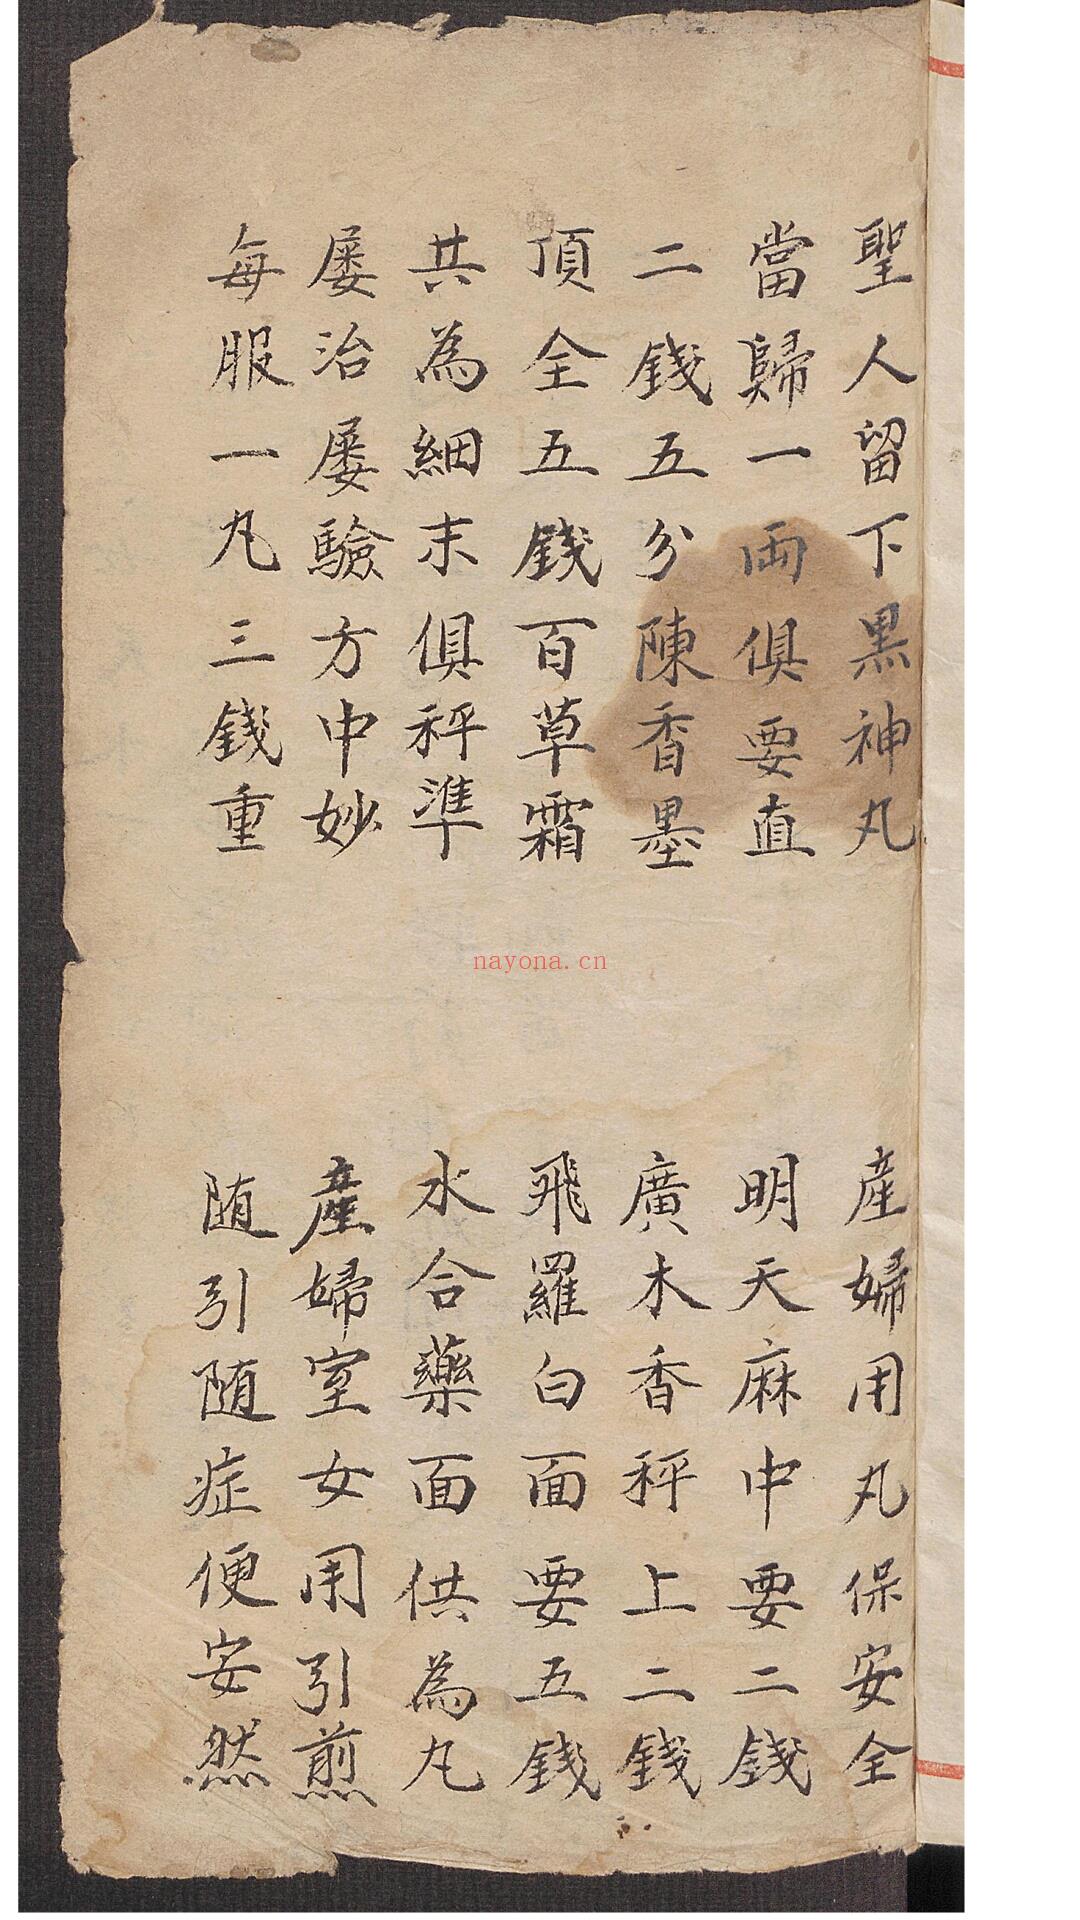 聖人留下黒神丸
產婦用丸保安全
當歸一両俱要直
明天麻中要二錢
二錢五分陳香墨
廣木香秤上二錢
頂全五錢百草霜
飛羅白面要五錢
共為細末俱秤準
水合藥面供為丸
屡治屡驗方中妙
產婦室女用引煎
每服一丸三錢重
随引随症便安然
nayona.cn